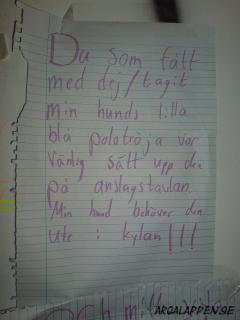 Du som fått
med dej/tagit
min hunds lilla
blå polotröja var
vänlig sätt upp den
på anslagstavlan
Min hund behöver den
ute i kylan!!!
ARGALAPPEN.SE